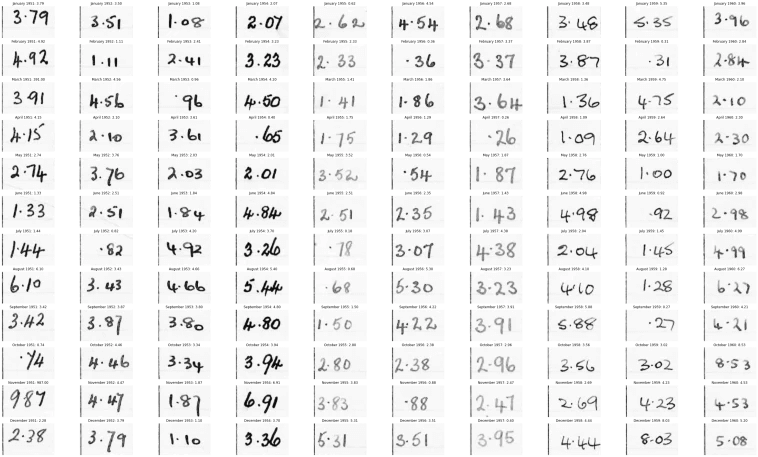 January 1951: January 1952: January 1953: January 1954: January 1955: January 1956: January 1957: January 1958: January 1959: January 1960:
3.79 3.51 1.08 2.07 2.62 4.54 2.68 3.48 5.35 3.96
February 1951: February 1952: February 1953: February 1954: February 1955: February 1956: February 1957: February 1958: February 1959: February 1960:
4.92 1.11 2.41 3.23 2.33 .36 3.37 3.87 .31 2.84
March 1951: March 1952: March 1953: March 1954: March 1955: March 1956: March 1957: March 1958: March 1959: March 1960:
391 4.56 .96 4.50 1.41 1.86 3.64 1.36 4.75 2.10
April 1951: April 1952: April 1953: April 1954: April 1955: April 1956: April 1957: April 1958: April 1959: April 1960:
4.15 2.10 3.61 .65 1.75 1.29 .26 1.09 2.64 2.30
May 1951: May 1952: May 1953: May 1954: May 1955: May 1956: May 1957: May 1958: May 1959: May 1960:
2.74 3.76 2.03 2.01 3.52 .54 1.87 2.76 1.00 1.70
June 1951: June 1952: June 1953: June 1954: June 1955: June 1956: June 1957: June 1958: June 1959: June 1960:
1.33 2.51 1.84 4.84 2.51 2.35 1.43 4.98 .92 2.98
July 1951: July 1952: July 1953: July 1954: July 1955: July 1956: July 1957: July 1958: July 1959: July 1960:
1.44 .82 4.92 3.26 .78 3.07 4.38 2.04 1.45 4.99
August 1951: August 1952: August 1953: August 1954: August 1955: August 1956: August 1957: August 1958: August 1959: August 1960:
6.10 3.43 4.66 5.44 .68 5.30 3.23 410 1.28 6.27
September 1951: September 1952: September 1953: September 1954: September 1955: September 1956: September 1957: September 1958: September 1959: September 1960:
3.42 3.87 3.80 4.80 1.50 4.22 3.91 5.88 .27 4.21
October 1951: October 1952: October 1953: October 1954: October 1955: October 1956: October 1957: October 1958: October 1959: October 1960:
.74 4.46 3.34 3.94 2.80 2.38 2.96 3.56 3.02 8.53
November 1951: November 1952: November 1953: November 1954: November 1955: November 1956: November 1957: November 1958: November 1959: November 1960:
987 4.47 1.87 6.91 3.83 .88 2.47 2.69 4.23 4.53
December 1951: December 1952: December 1953: December 1954: December 1955: December 1956: December 1957: December 1958: December 1959: December 1960:
2.38 3.79 1.10 3.36 5.31 3.51 3.95 4.44 8.03 5.08